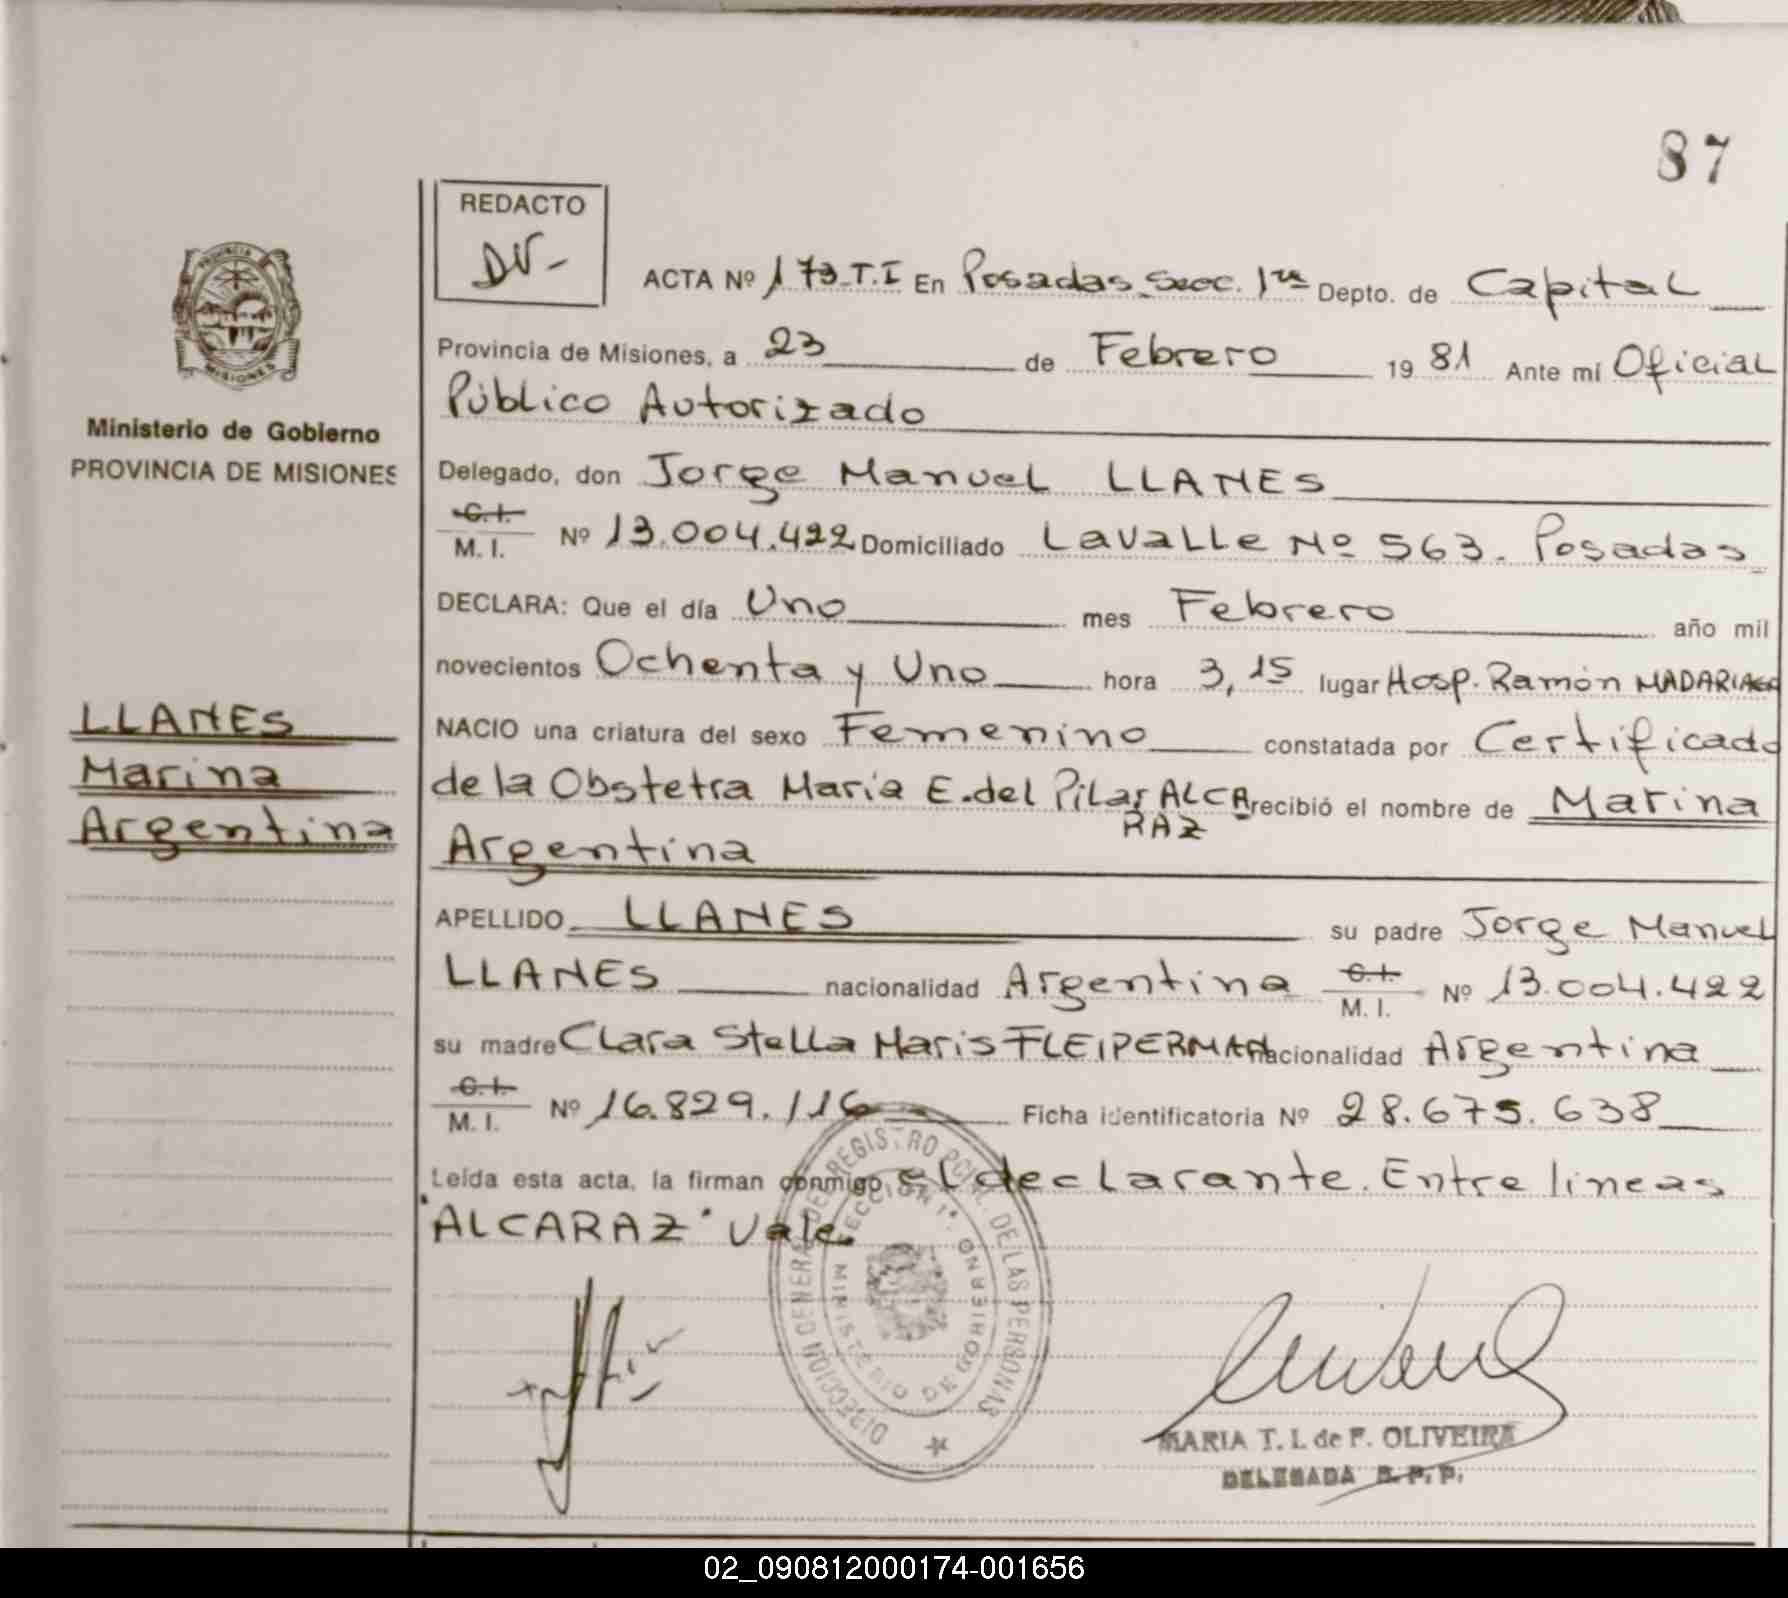 87
REDACTO
DV-
ACTA Nº 173-T.I En Posadas Secc. 1ra Depto. de Capital
Provincia de Misiones, a 23 de Febrero 1981 Ante mí Oficial
Público Autorizado
PROVINCIA
MISIONES
Ministerio de Gobierno
PROVINCIA DE MISIONES
Delegado, don Jorge Manuel LLANES
C.I.
M. I. Nº 13.004.422 Domiciliado Lavalle Nº 563. Posadas
DECLARA: Que el día Uno mes Febrero año mil
novecientos Ochenta y Uno hora 3,15 lugar Hosp. Ramón MADARIAGA
LLANES
Marina
Argentina
NACIO una criatura del sexo Femenino constatada por Certificado
de la Obstetra María E. del Pilar ALCA recibió el nombre de Marina
RAZ
Argentina
APELLIDO LLANES su padre Jorge Manuel
LLANES nacionalidad Argentina C.I. M. I. Nº 13.004.422
su madre Clara Stella Maris FLEIPERMAN nacionalidad Argentina
C.I.
M. I. Nº 16.829.116 Ficha identificatoria Nº 28.675.638
Leída esta acta, la firman conmigo el declarante. Entre lineas
"ALCARAZ" Vale.
DIRECCION GENERAL DEL REGISTRO PCIAL. DE LAS PERSONAS
SECCION 1ª.
MINISTERIO DE GOBIERNO
MARIA T. I. de F. OLIVEIRA
DELEGADA R. P. P.
02_090812000174-001656